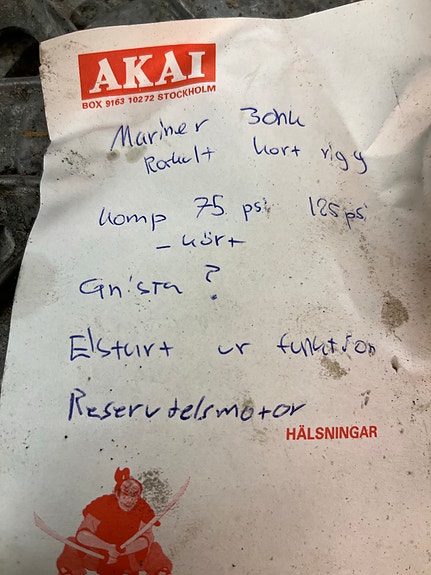 AKAI
BOX 9163 102 72 STOCKHOLM
Mariner 30hk
kort rigg
komp 75 psi 125 psi
- kört
Gnista ?
Elstart ur funktion
Reservdelsmotor
HÄLSNINGAR